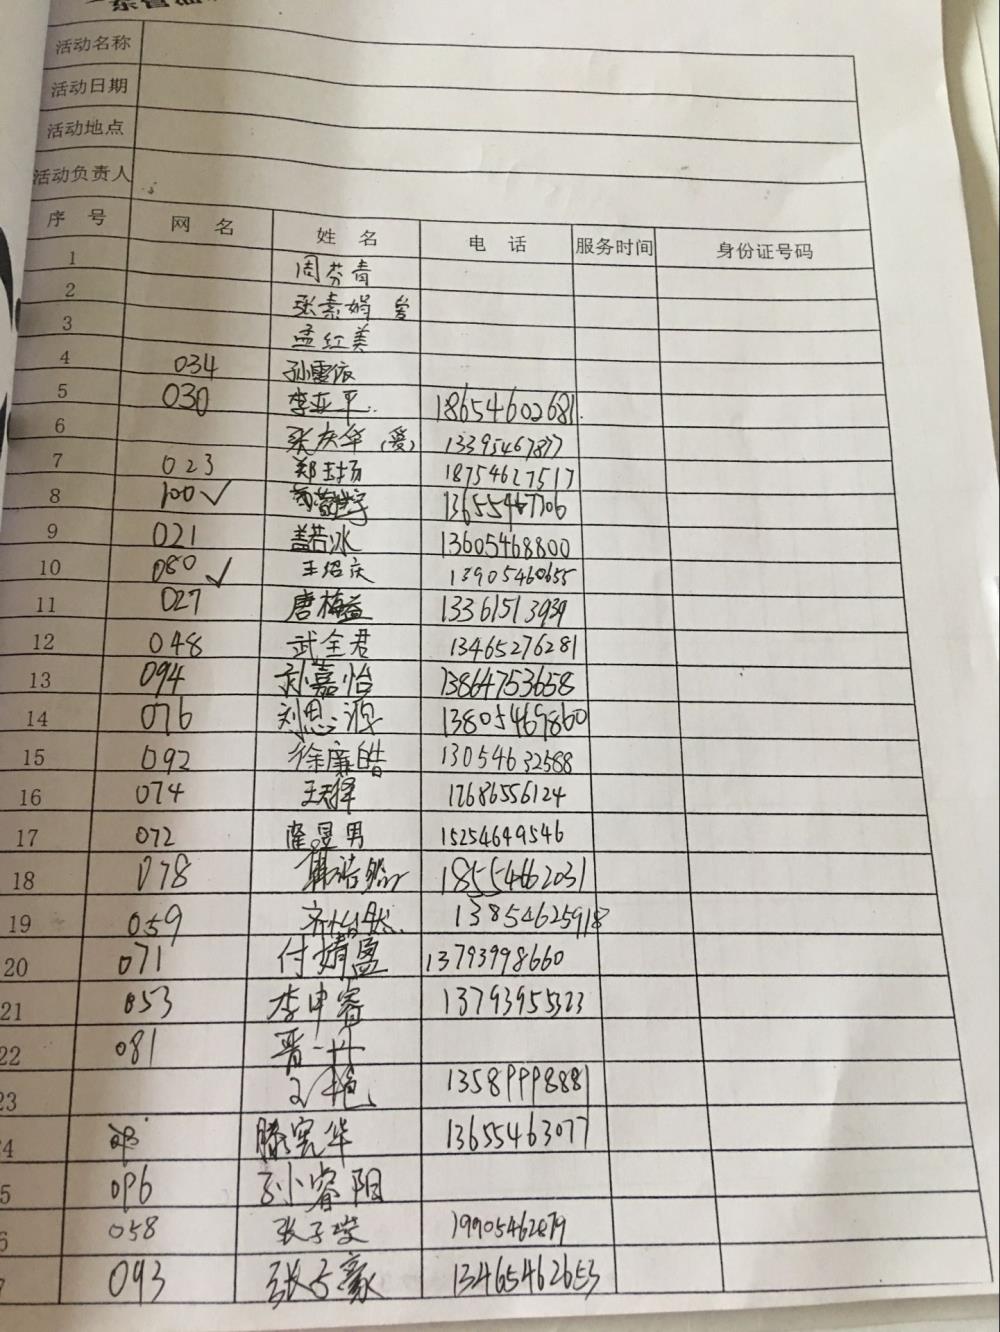 活动名称
活动日期
活动地点
活动负责人
序 号 网 名 姓 名 电 话 服务时间 身份证号码
1 周芬青
2 张素娟
3 孟红美
4 034 孙雪依
5 030 李亚平 18654602681
6 张庆华(爱) 13395467877
7 023 郑玉扬 18754627517
8 100✓ 13655467706
9 021 盖若冰 13605468800
10 080✓ 王绍庆 13905460655
11 027 唐梅益 13361513939
12 048 武全君 13465276281
13 094 孙嘉怡 13864753658
14 076 刘思源 13805469860
15 092 徐廉皓 13054632588
16 074 王天泽 17686556124
17 072 隆昱男 15254649546
18 078 18554662031
19 059 齐怡然 13854625918
20 071 付婧盈 13793998660
21 053 李申睿 13793955323
22 081 晋一丹
23 13589998881
4 滕宪华 13655463077
5 096 孙睿阳
6 058 张子璇 19905462879
093 张子豪 13465462653